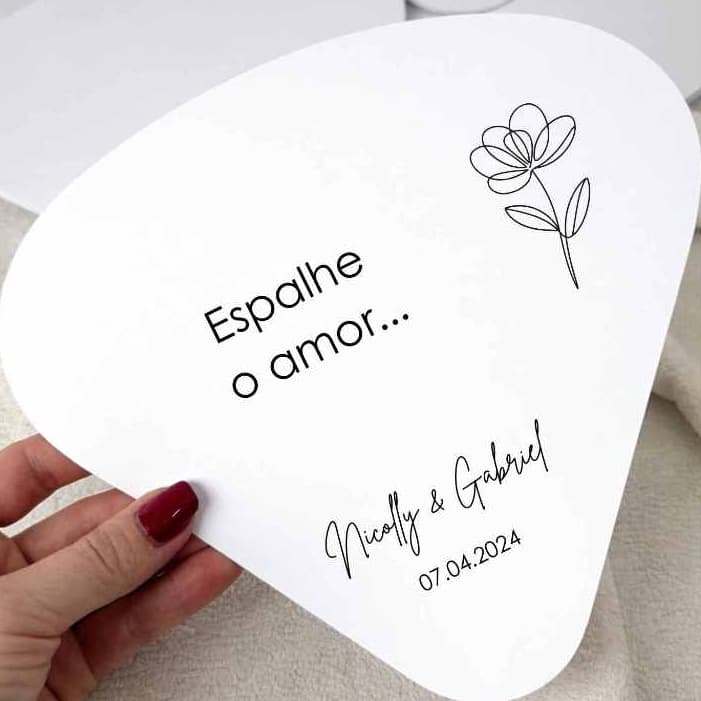 Espalhe
o amor...
Nicolly & Gabriel
07.04.2024